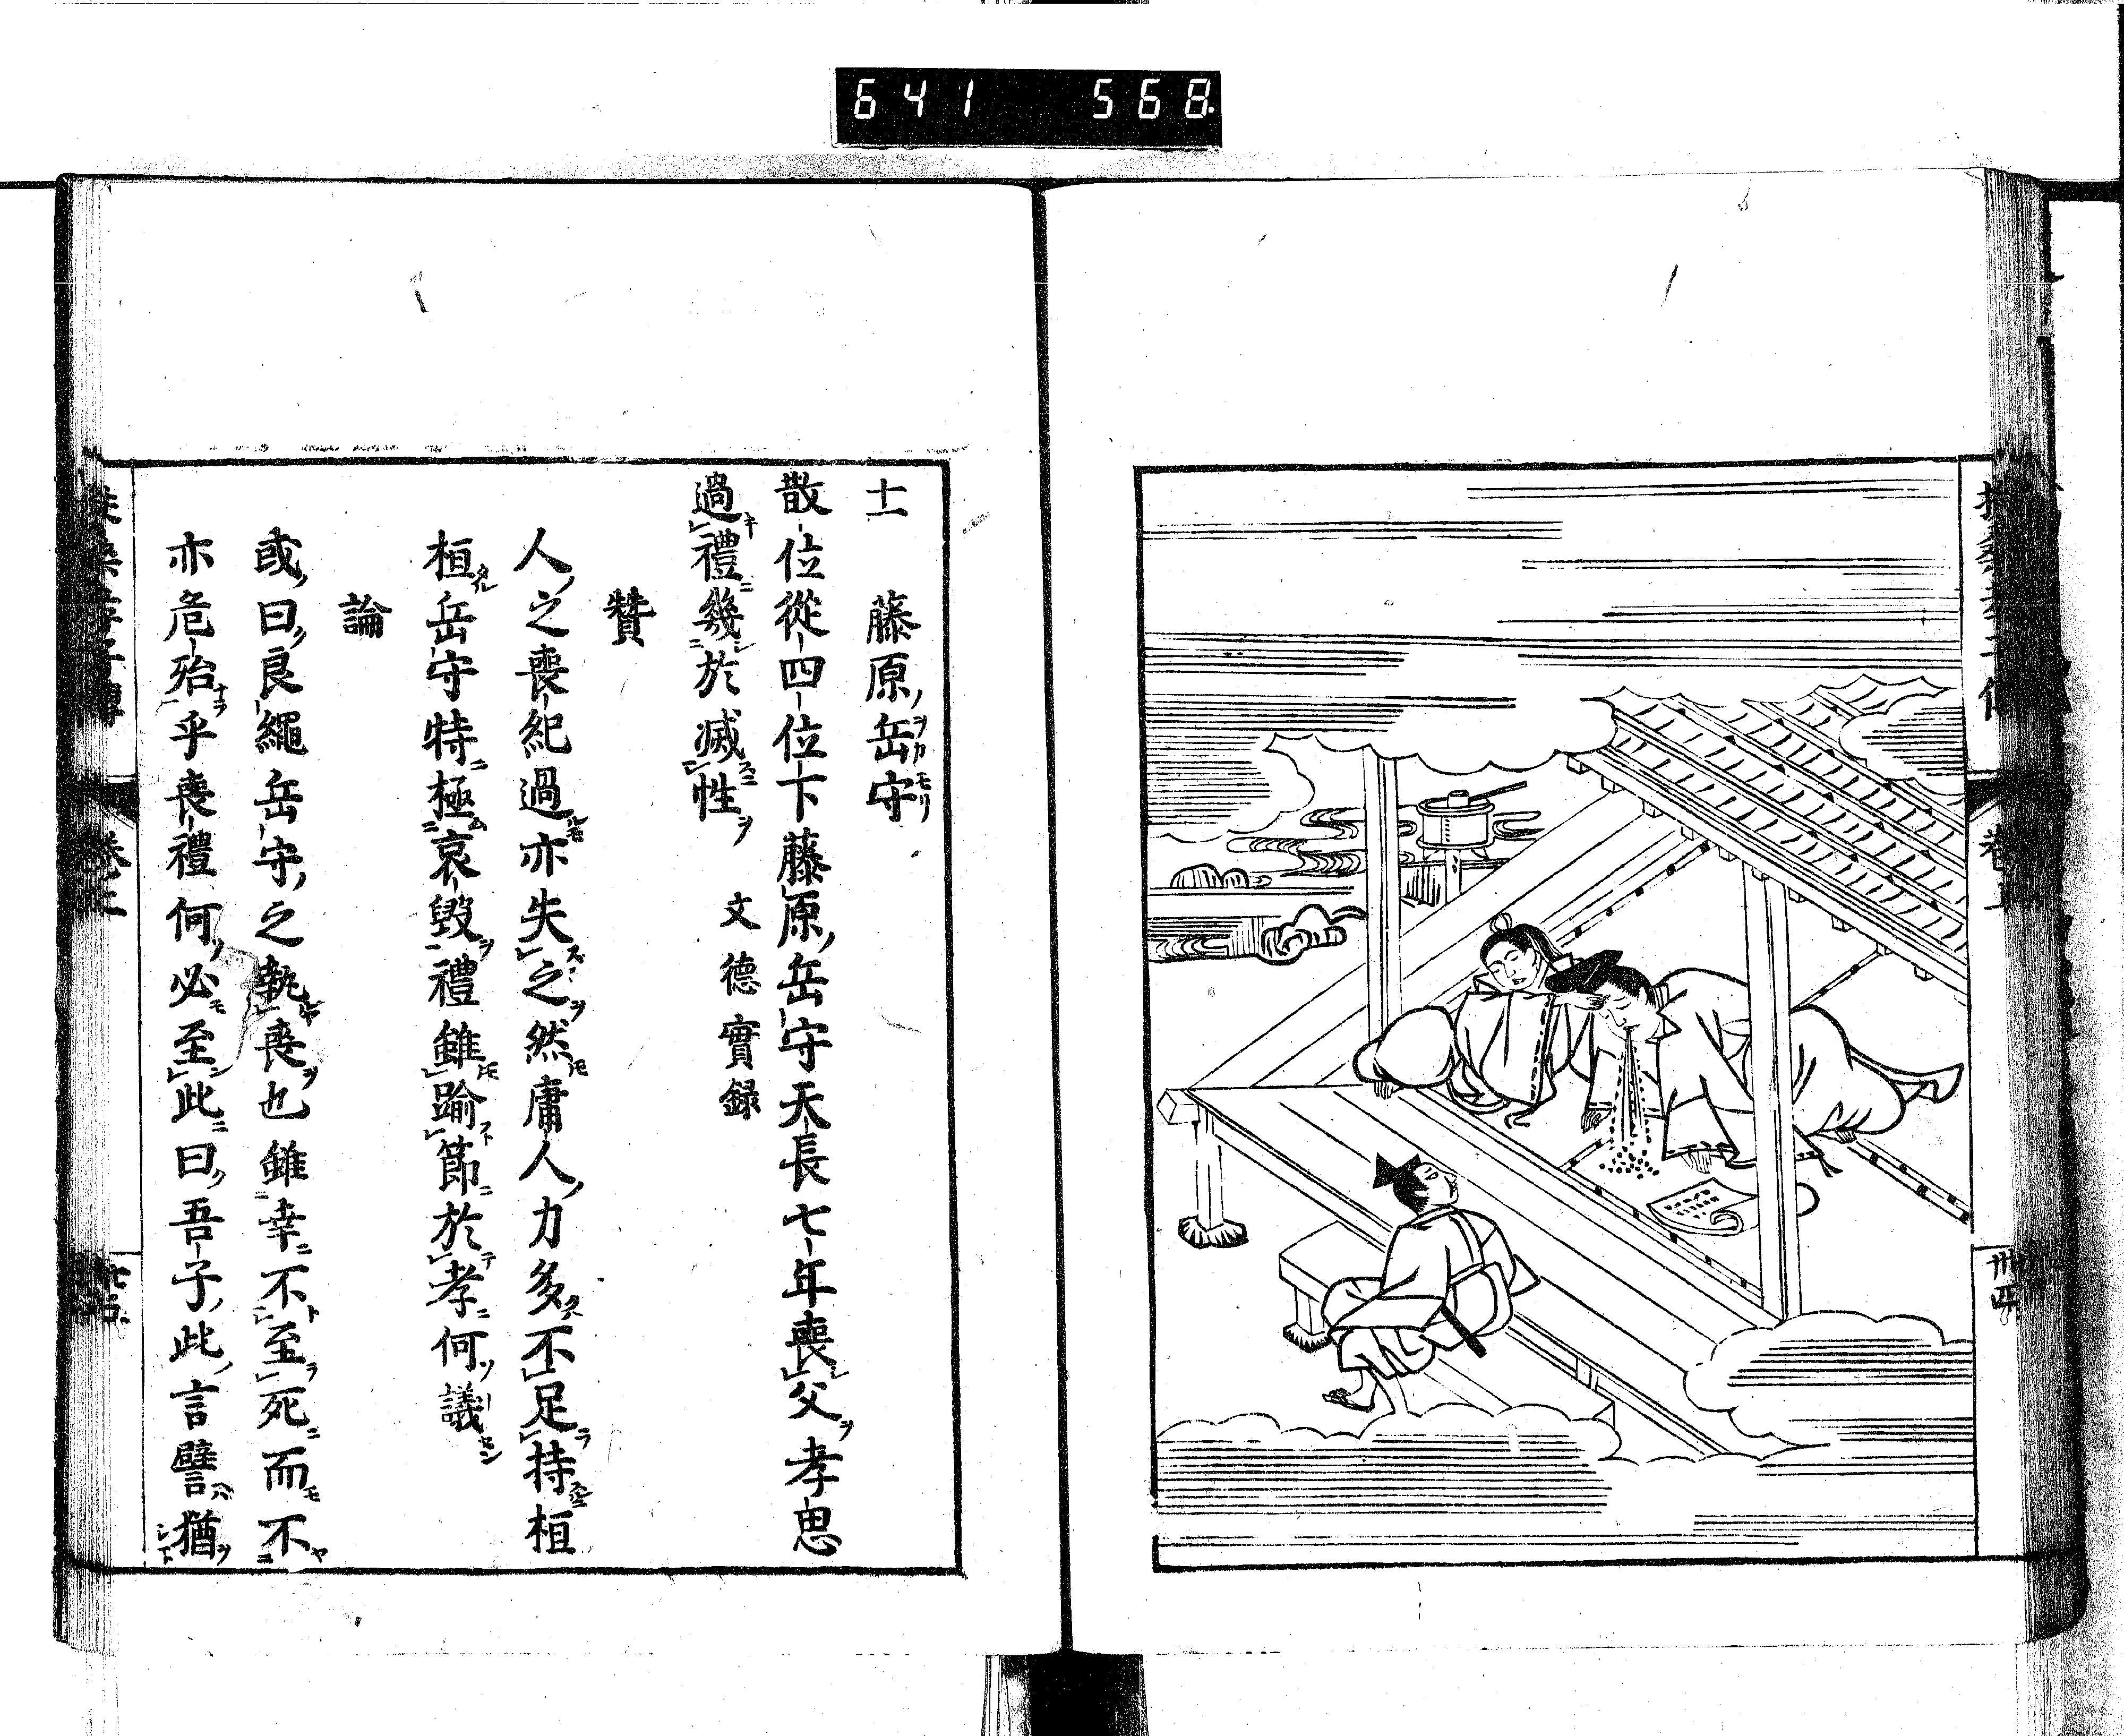 641 568
十一 藤原岳守 ヲカモリ
散位從四位下藤原岳守天長七年喪父孝思
過禮幾於滅性 文德實録
贊
人之喪紀過亦失之然庸人力多不足持桓
桓岳守特極哀毀禮雖踰節於孝何議
論
或曰良繩岳守之執喪也雖幸不至死而不
亦危殆乎喪禮何必至此曰吾子此言譬猶